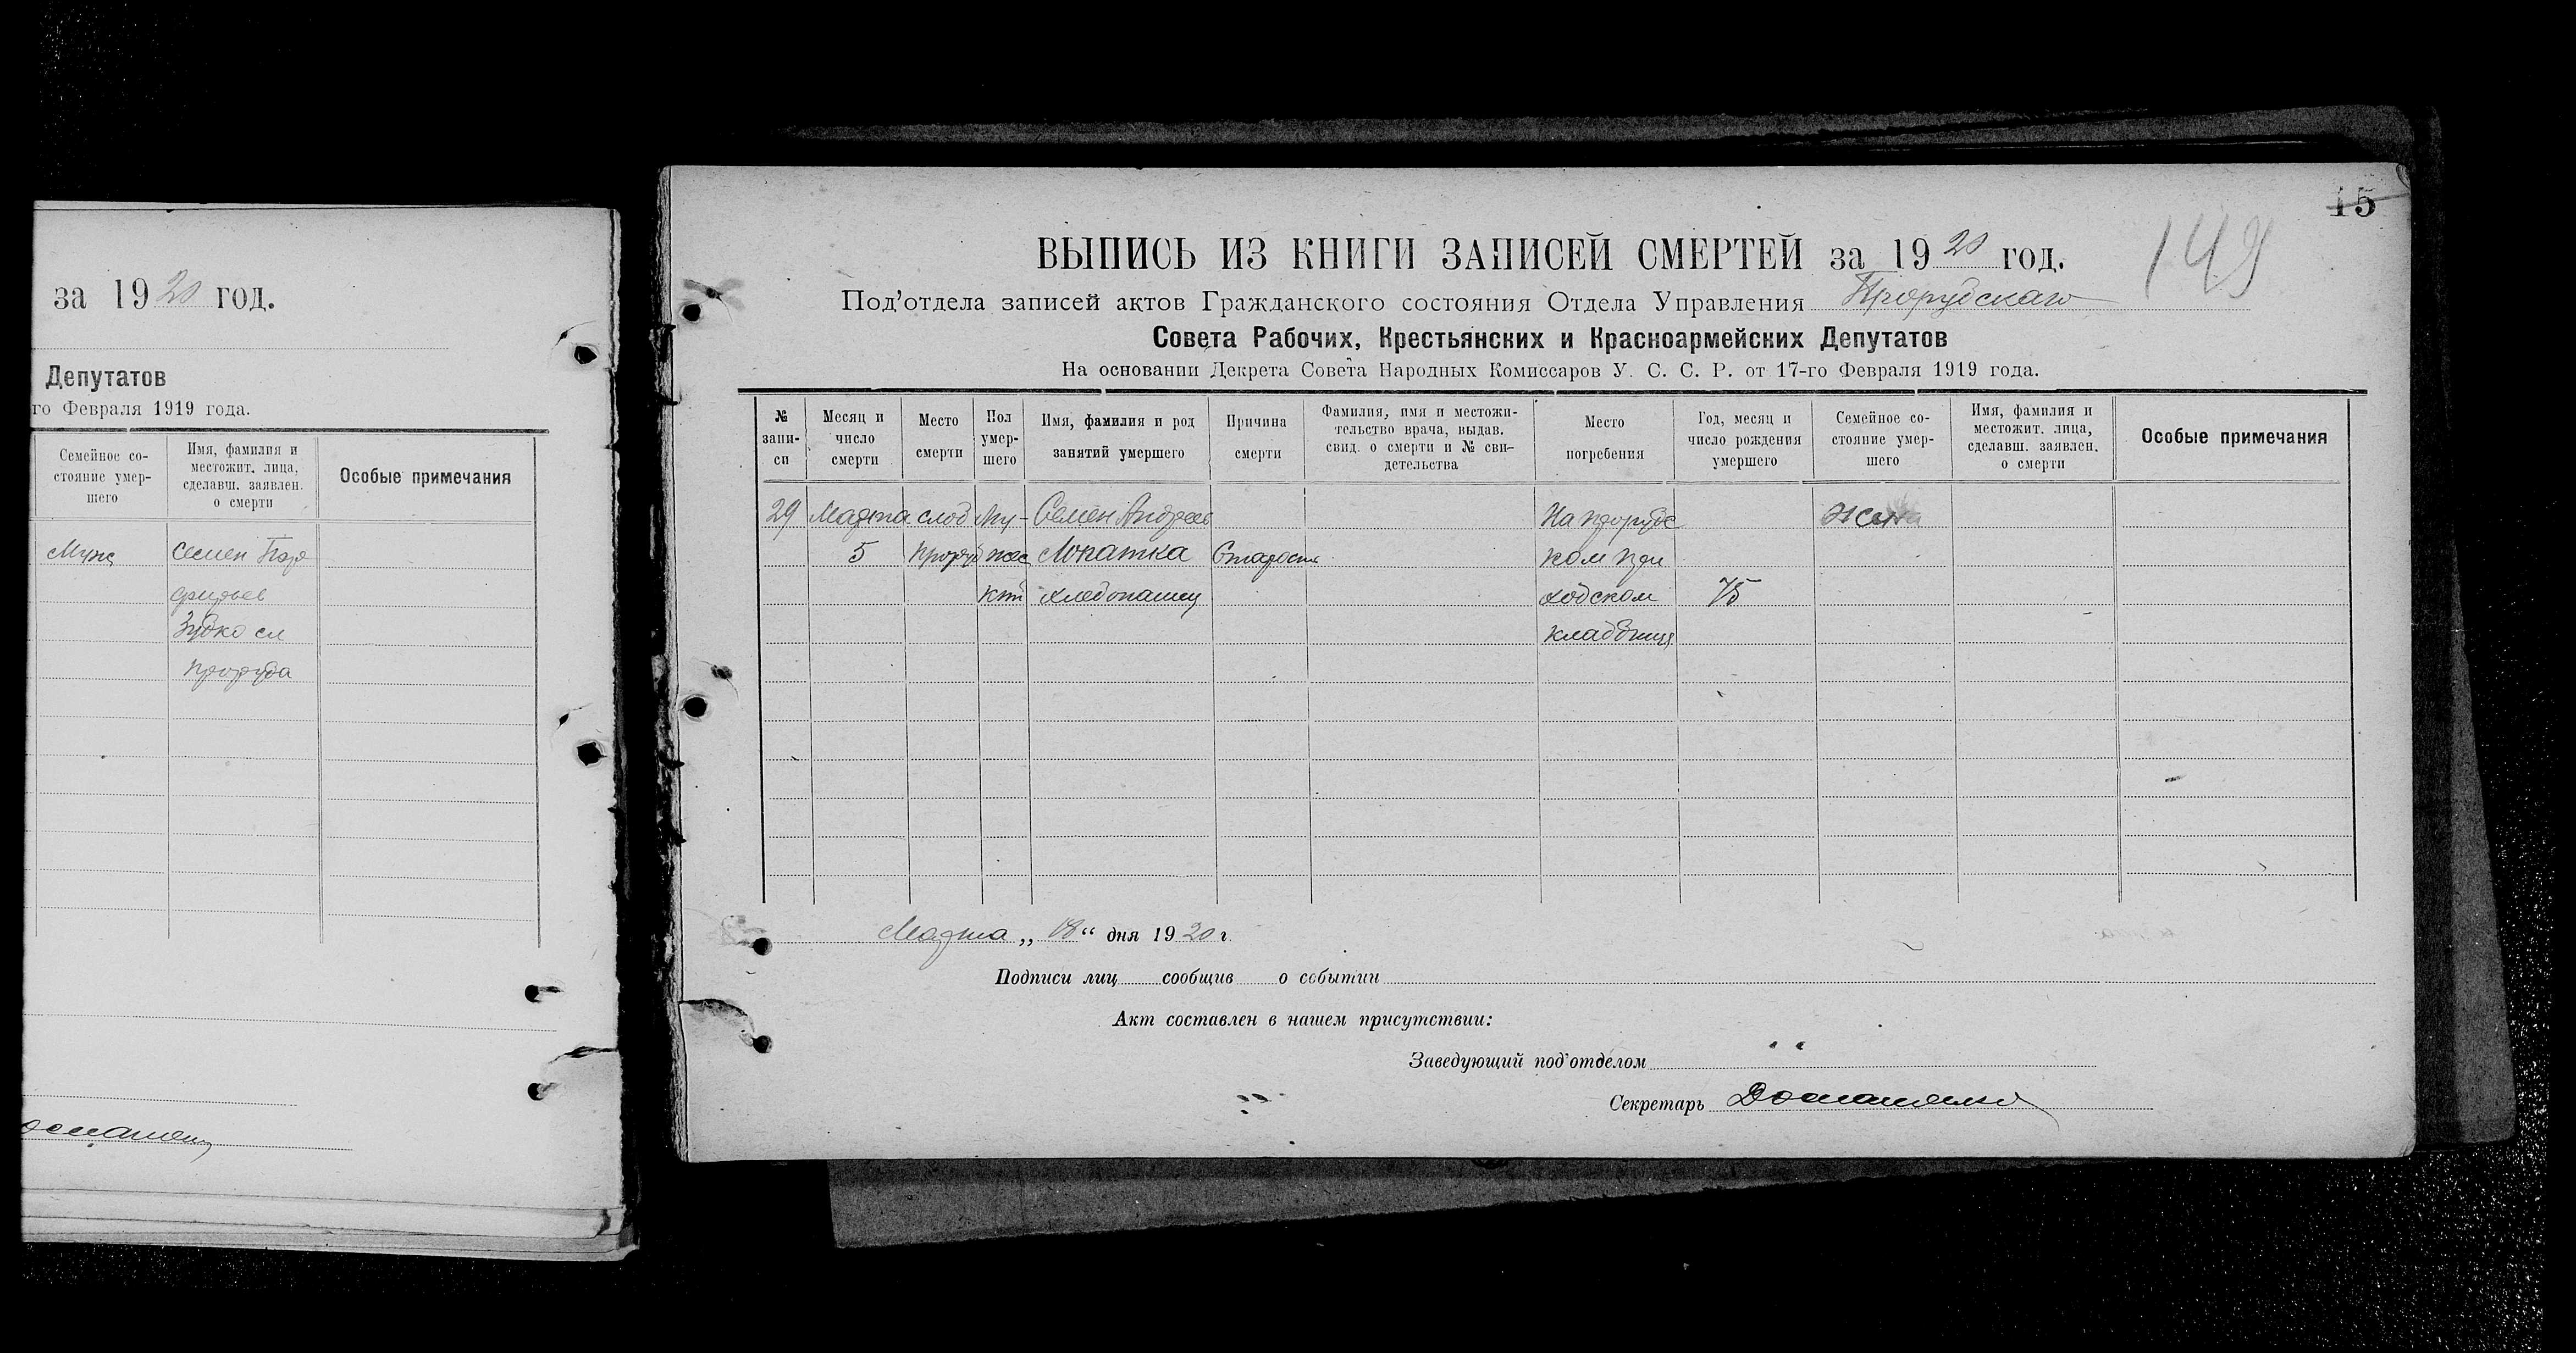 за 1920 год.
Депутатов
го Февраля 1919 года.
Семейное со-
стояние умер-
шего
Имя, фамилия и
местожит. лица,
сделавш. заявлен.
о смерти
Особые примечания
Муж
Семен Пор
фирьев
Зубко сл
Проруба
15
149
ВЫПИСЬ ИЗ КНИГИ ЗАПИСЕЙ СМЕРТЕЙ за 1920 год.
Под'отдела записей актов Гражданского состояния Отдела Управления Прорубскаго
Совета Рабочих, Крестьянских и Красноармейских Депутатов
На основании Декрета Совета Народных Комиссаров У. С. С. Р. от 17-го Февраля 1919 года.
№
запи-
си
Месяц и
число
смерти
Место
смерти
Пол
умер-
шего
Имя, фамилия и род
занятий умершего
Причина
смерти
Фамилия, имя и местожи-
тельство врача, выдав.
свид. о смерти и № сви-
детельства
Место
погребения
Год, месяц и
число рождения
умершего
Семейное со-
стояние умер-
шего
Имя, фамилия и
местожит. лица,
сделавш. заявлен.
о смерти
Особые примечания
29
Марта
5
слоб
Проруб
Му-
жес
кий
Семен Андреев
Лопатка
хлебопашец
Старость
На прорубс
ком при
ходском
кладбище
75
Жена
Марта „ 18 “ дня 1920 г
Подписи лиц сообщив о событии
Акт составлен в нашем присутствии:
Заведующий под'отделом
Секретарь